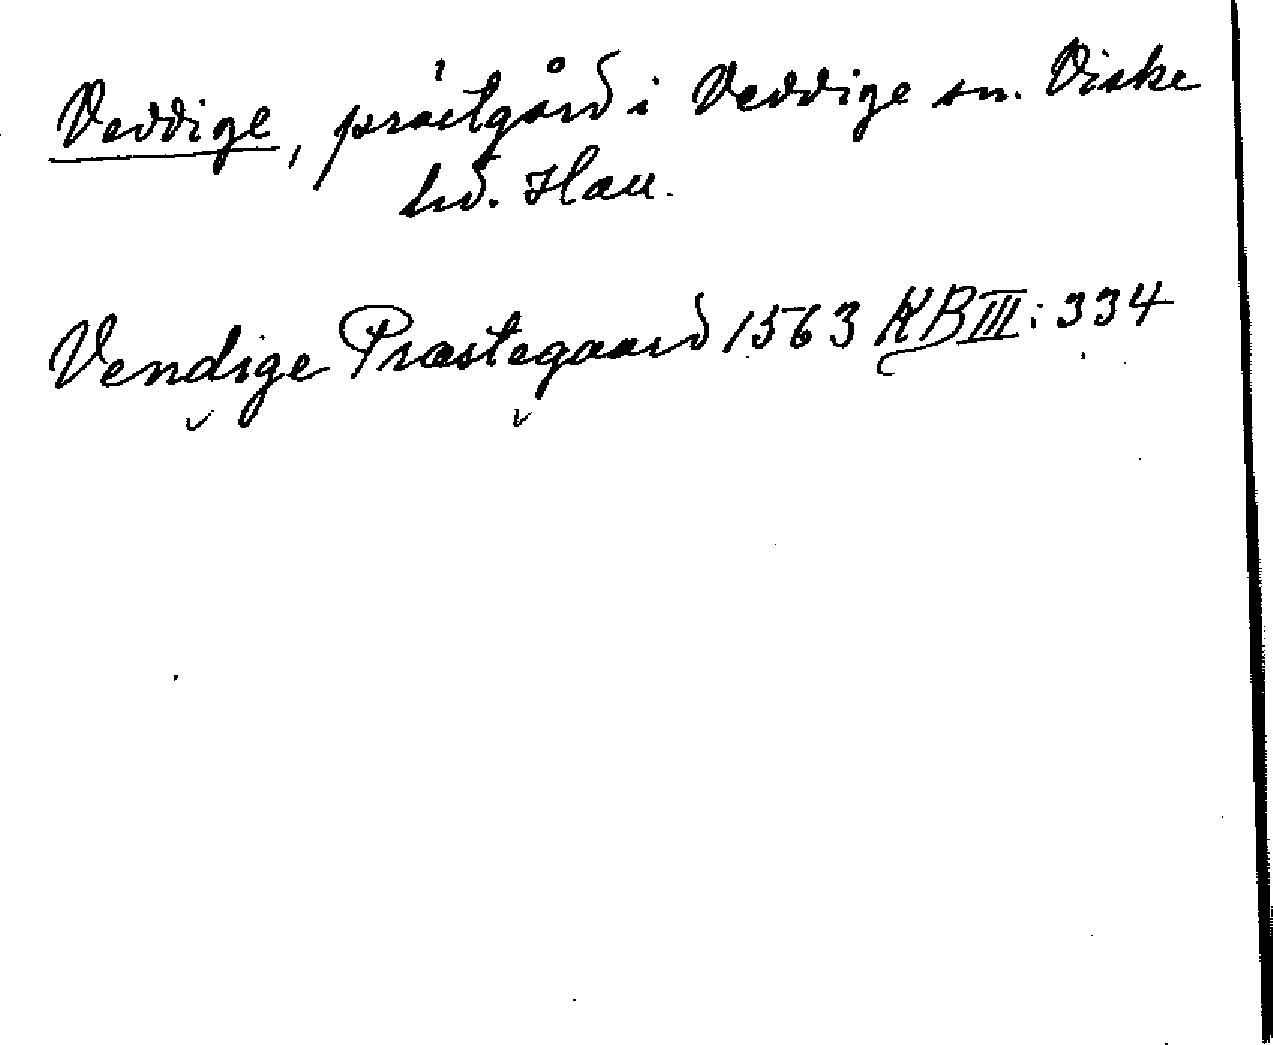 Veddige, prästgård i Veddige sn. Viske
hd. Hall.
Vendige Præstegaard 1563 KB III: 334